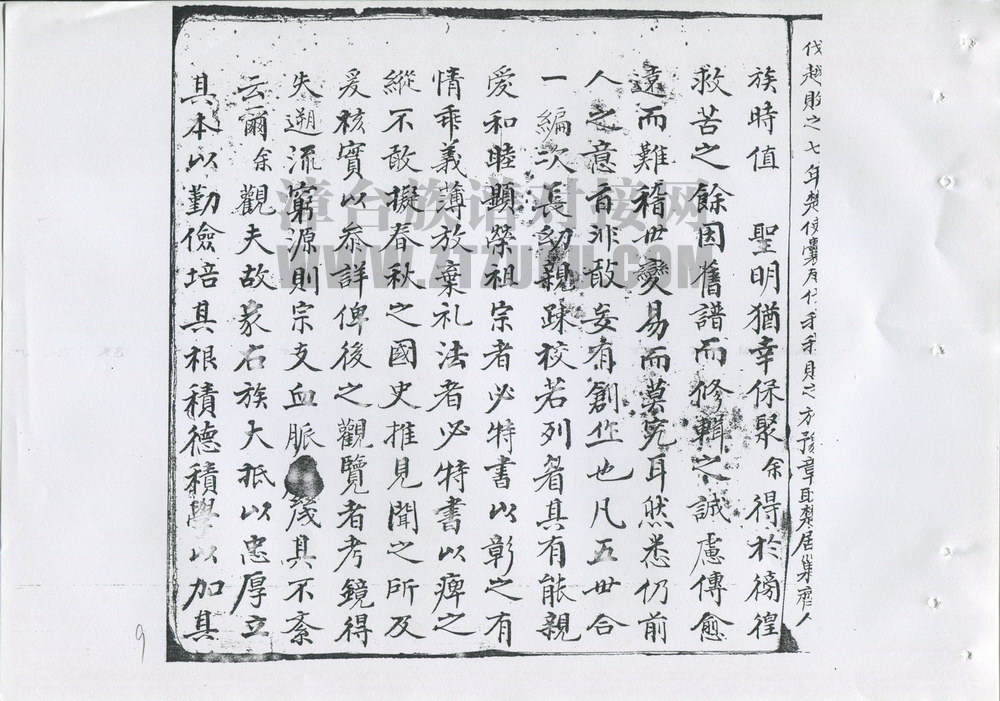 伐越敗之七年楚使囊瓦伐
豫章取楚居巢
族時值 聖明猶幸保聚余得於徬徨
救苦之餘因舊譜而修輯之誠慮傳愈
遠而難稽世變易而莫究耳然悉仍前
人之意言非敢妄有創作也凡五世合
一編次長幼親疎校若列眉其有能親
愛和睦顯榮祖宗者必特書以彰之有
情乖義薄放棄礼法者必特書以痺之
縱不敢擬春秋之國史推見聞之所及
爰核實以叅詳俾後之觀覽者考鏡得
失遡流窮源則宗支血脈 幾其不紊
云爾余觀夫故家右族大抵以忠厚立
其本以勤儉培其根積德積學以加其
澹台族谱对接网
WWW.ZTZUPU.COM
9